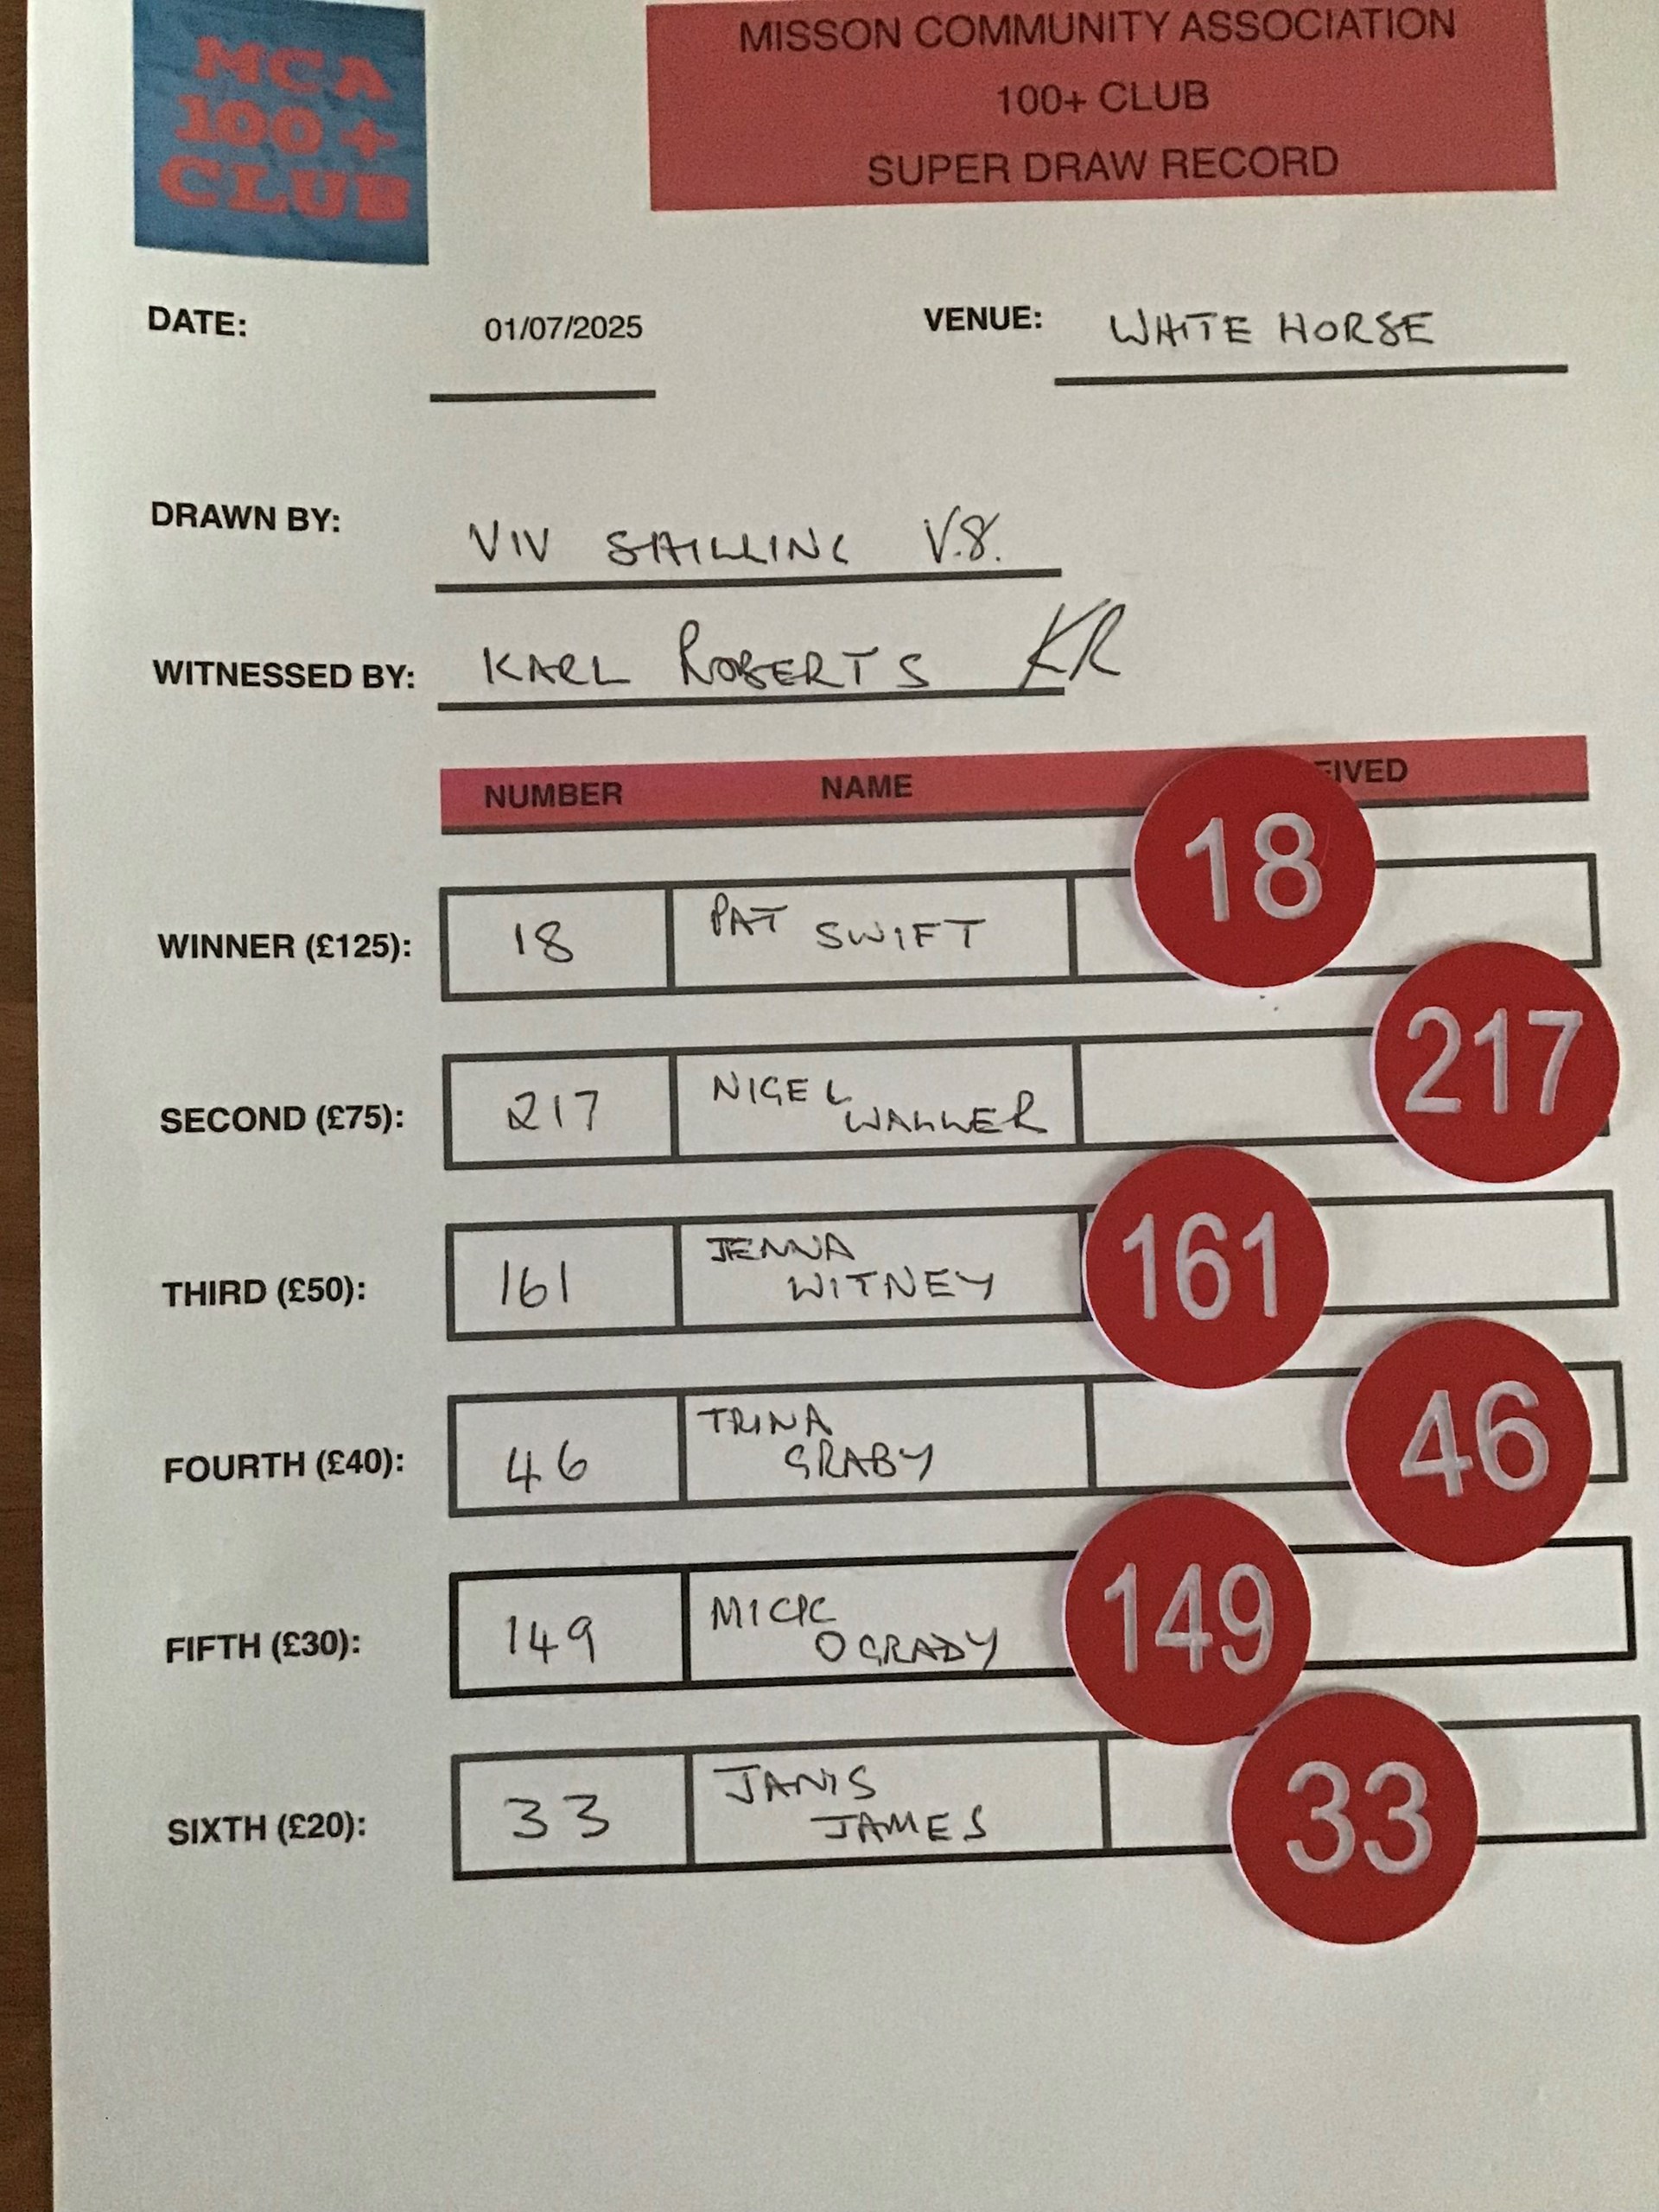 MCA
100 +
CLUB
MISSON COMMUNITY ASSOCIATION
100+ CLUB
SUPER DRAW RECORD
DATE: 01/07/2025 VENUE: WHITE HORSE
DRAWN BY: VIV V.S.
WITNESSED BY: KARL ROBERTS KR
NUMBER NAME EIVED
18
WINNER (£125): 18 PAT SWIFT
217
SECOND (£75): 217 NIGEL WALLER
161
THIRD (£50): 161 JENNA WITNEY
46
FOURTH (£40): 46 TRINA GRABY
149
FIFTH (£30): 149 MICK OGRADY
33
SIXTH (£20): 33 JANIS JAMES